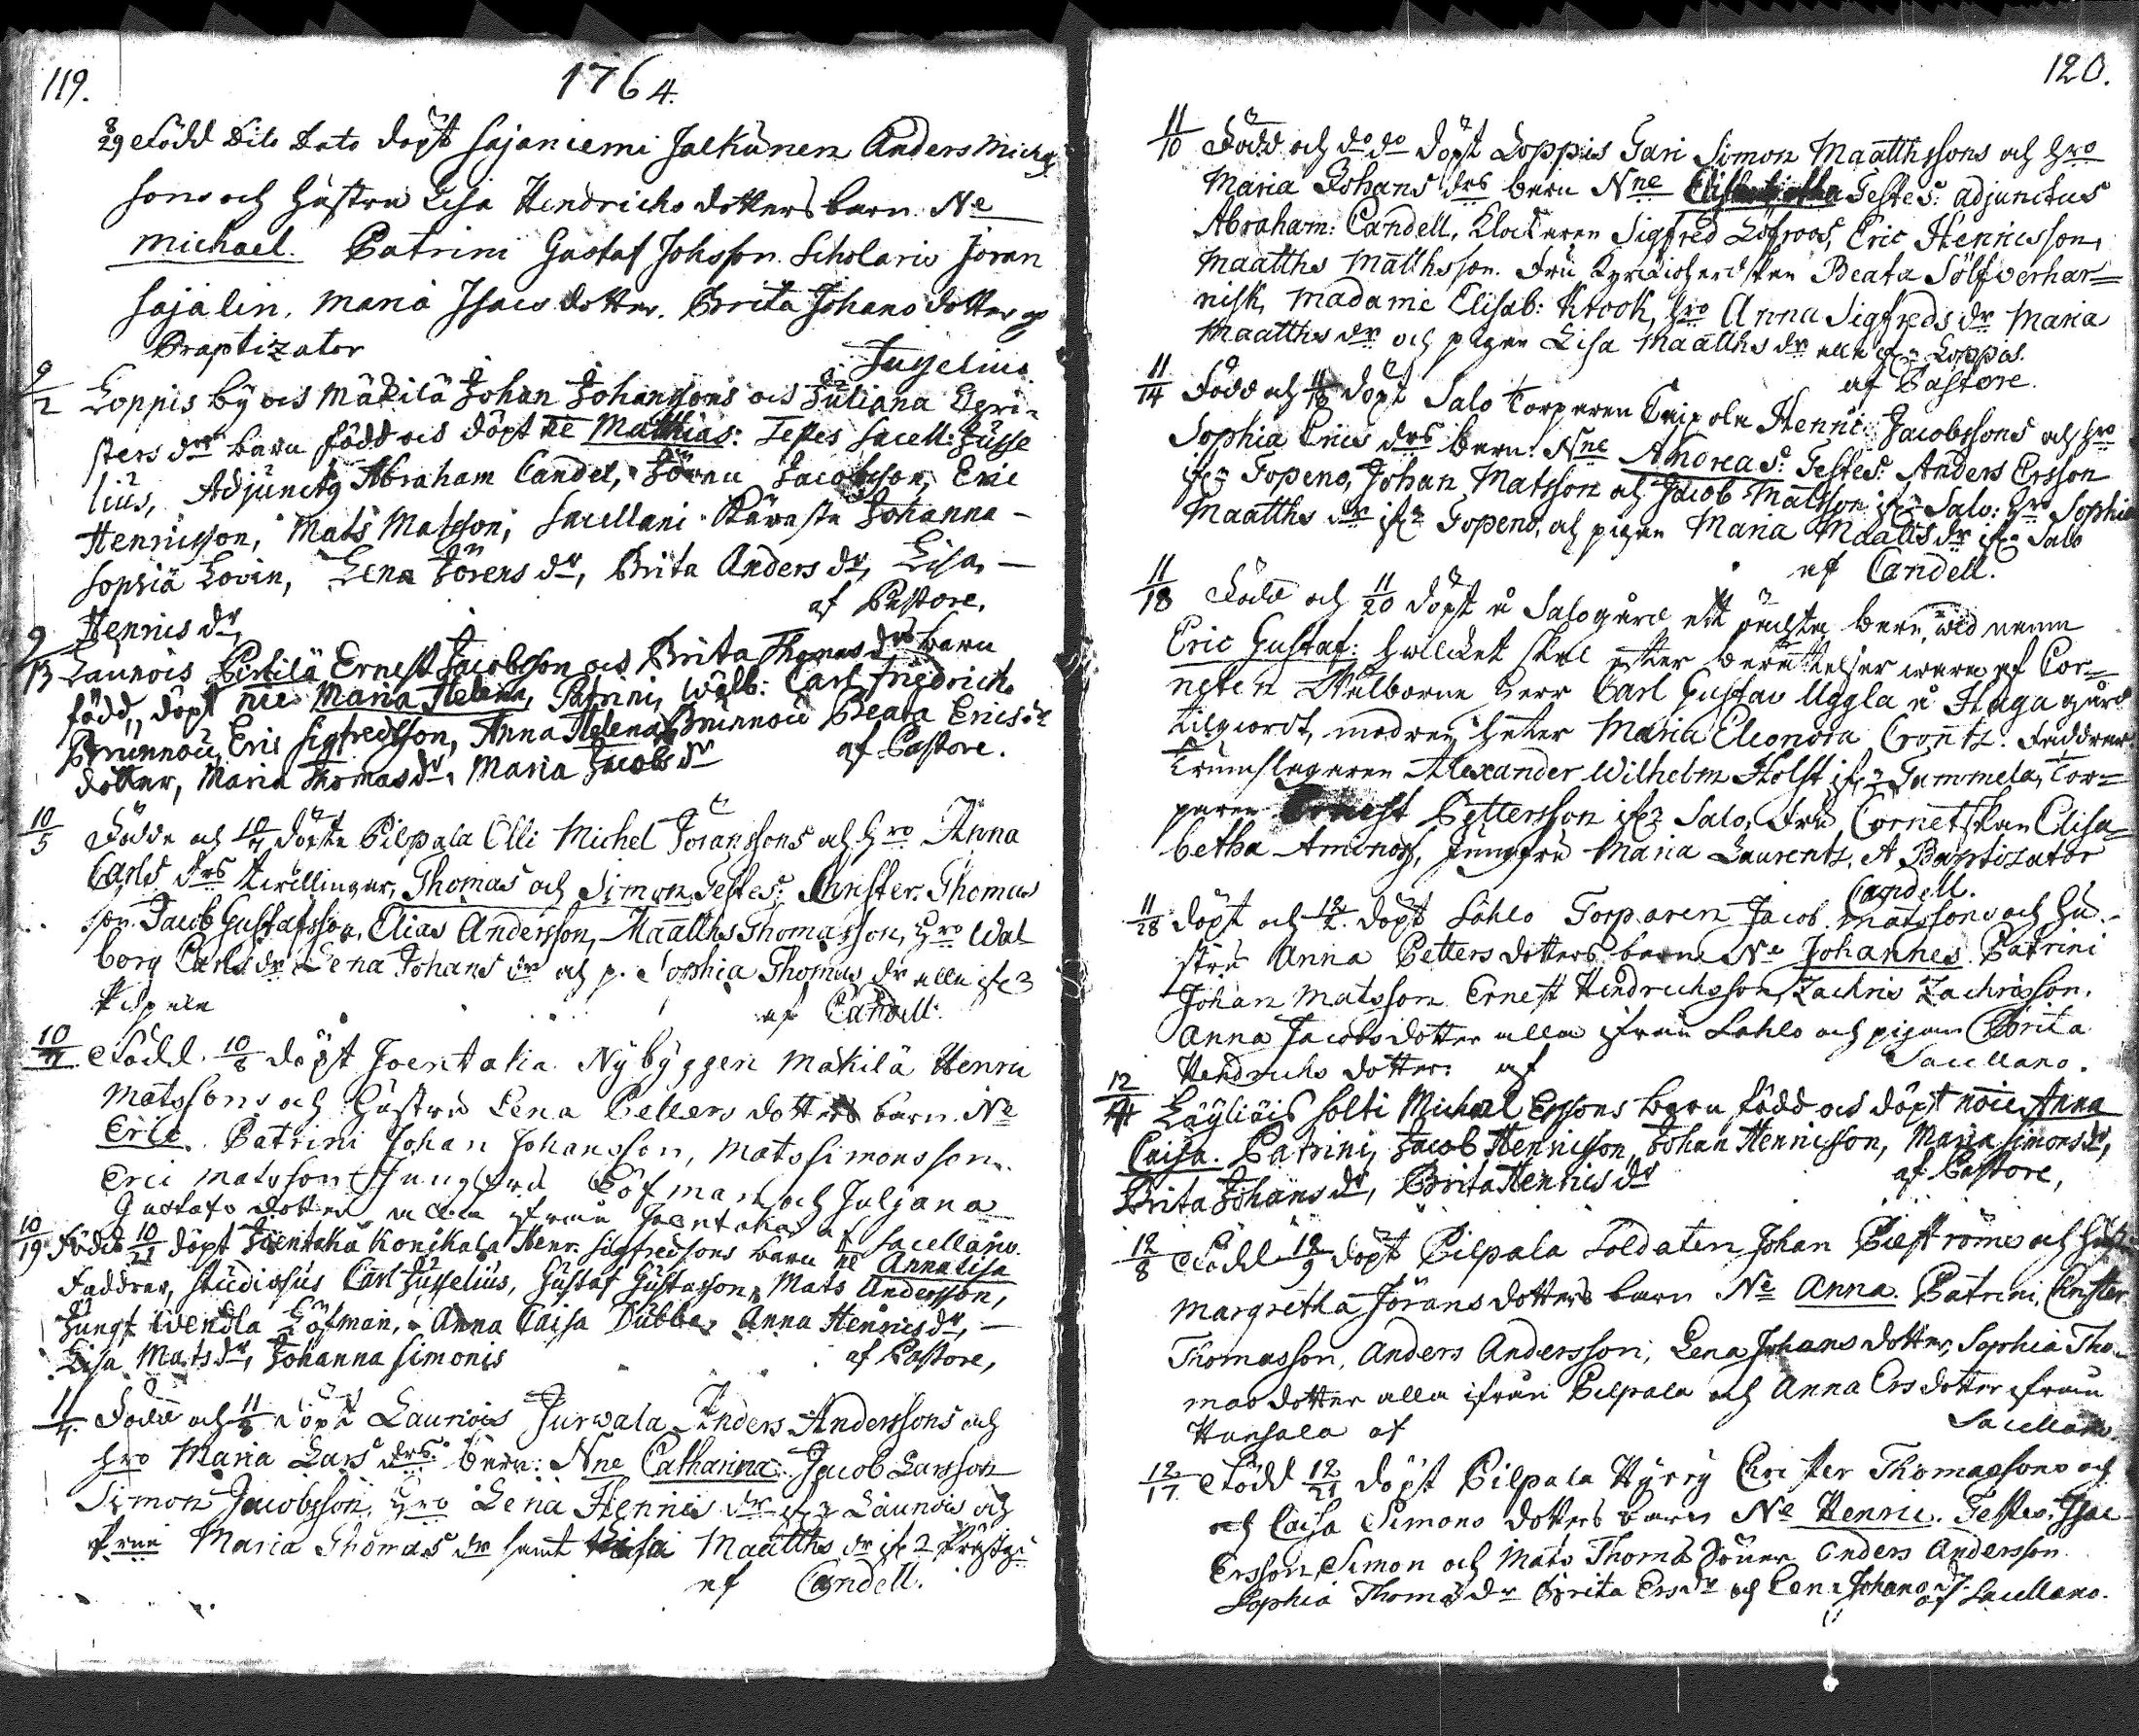 119.
1764.
8/29 Född Dito Dato döpt Sajaniemi Jalkünen Anders Michels
sons och Hustru Lisa Hendrichs dotters barn. Ne
Michael. Patrini Gustaf Johsson. Scholaris Jöran
Sajalin. Maria Isacs dotter. Brita Johans dotter
Baptizator
Jusselius.
9/2 Loppis by ocs Mäkilä Johan Johanssons ocs Juliana
sters dors barn född ocs döpt ne Matthias: Testes Sacell: Jusse
lius, Adjunctg Abraham Candel, Jören Jacobsson, Eric
Henricsson, Mats Matsson, Sacellani Käresta Johanna
Sophia Lovin, Lena Jörens dr, Brita Anders dr, Lisa
Henrics dr
af Pastore.
9/13 Launois Pertilä Ernest Jacobsson ocs Brita Thomas drs barn
född, döpt ne Maria Helena, Patrini, Wälb: Carl Friedrich
Brunnou, Eric Sigfredsson, Anna Helena Brunnou Beata Erics
dotter, Maria Thomas dr, Maria Jacobs dr
af Pastore.
10/5 Födde och 10/7 döpte Pilpala Olli Michel Jöranssons och Hro Anna
Carls drs twillingar, Thomas och Simon. Testes: Christer Thomas
son. Jacob Gustafsson, Elias Andersson, Maatths Thomasson, Hro Wal
borg Carls dr Lena Johans dr och p. Sophia Thomas dr alla ifr
Pilpala
af Candell.
10/7 Född. 10/8 döpt Joentaka Nybyggen Mäkilä Henric
Matssons och Hustru Lena Petters dotters barn. Ne
Eric. Patrini Johan Johansson, Mats Simonsson.
Eric Matsson Jungfru Löfman och Juljana
Gustafs dotter alla ifrån Joentaka af Sacellano.
10/19 Född 10/21 döpt Joentaka Konikala Henr. Sigfredsons barn ne Anna Lisa
Faddrar, Studiosus Carl Jusselius, Gustaf Gustafsson, Mats Andersson,
Jungf Wendla Löfman, Anna Caisa Dubbe, Anna Henrics dr,
Lisa Mats dr, Johanna Simonis
af Pastore,
11/4 Född och 11/8 döpt Launois Jurwala Anders Anderssons och
Hro Maria Lars drs barn: Nne Catharina: Jacob Larsson
Simon Jacobsson, Hro Lena Henrics dr ifr Launois och
Maria Thomas dr samt Lisa Maatths dr ifr
af Candell.
120.
11/10 Född och do do döpt Loppis Tari Simon Maatthssons och Hro
Maria Johans drs barn Nne Testes: Adjunctus
Abraham: Candell, Klockaren Sigfred Löfroos, Eric Henricsson,
Maatths Matthsson. Fru Kyrckioherdskan Beata Sölfverhar=
nisk, Madame Elisab: Krook, Hro Anna Sigfreds dr Maria
Maatths dr och pigan Lisa Maatths dr alla ifr Loppis.
af Pastore.
11/14 Född och 11/18 döpt Salo Torparen Henric Jacobssons och Hro
Sophia Erics drs barn. Nne Andreas: Testes: Anders Ersson
ifr Topeno, Johan Matsson och Jacob Matsson ifr Salo: Hro Sophia
Maatths dr ifr Topeno, och pigan Maria Maatts dr ifr Salo
af Candell.
11/18 Född och 11/20 döpt å Salogård ett oächta barn, wid namn
Eric Gustaf: hwilcket skal efter berättelser wara af Cor=
neten Wälborne Herr Carl Gustav Uggla å Haga gård
tilgiordt, modren heter Maria Eleonora Crontz. Faddrar
Trumslagaren Alexander Wilhelm Holst ifr Tammela, Tor=
paren Ernest Pettersson ifr Salo, Fru Cornetskan Elisa=
betha Aminoff, Jungfru Maria Laurentz. A Baptizator
Candell.
11/28 döpt och 12/2. döpt Sahlo Torparen Jacob Matssons och Hu
stru Anna Petters dotters barn Ne Johannes. Patrini
Johan Matsson Ernest Hendrichsson, Zachris Zachrisson.
Anna Jacobs dotter alla ifrån Sahlo och pigan Brita
Hendrichs dotter. af
Sacellano.
12/4 Läyliäis Solti Michael Erssons barn född ocs döpt noie Anna
Caisa. Patrini, Jacob Henricsson, Johan Henricsson, Maria Simons dr,
Brita Johans dr, Brita Henrics dr
af Pastore,
12/8 Född 12/9 döpt Pilpala Soldaten Johan Piilströms och Hustru
Margretha Jörans dotters barn Ne Anna. Patrini, Christer
Thomasson, Anders Andersson, Lena Johans dotter, Sophia Tho
mas dotter alla ifrån Pilpala och Anna Ers dotter ifrån
Hunsala af
Sacellano.
12/17 Född 12/21 döpt Pilpala Hyrry Christer Thomassons och
och Caisa Simons dotters barn Ne Henric. Testes. Isac
Ersson, Simon och Mats Thomæ Söner Anders Andersson
Sophia Thomæ dr Brita Ers dr och Lena Johans dr af Sacellano.